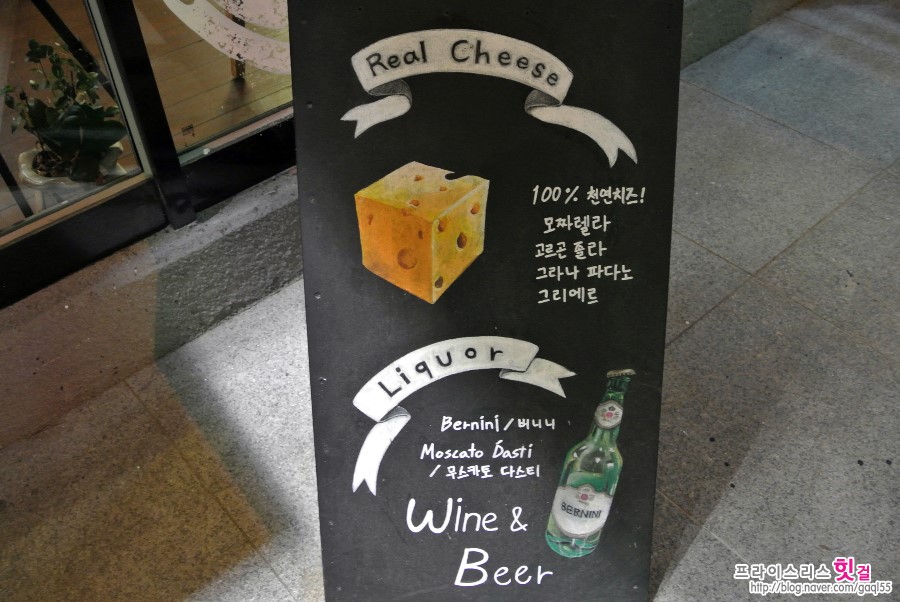 Real Cheese
100% 천연치즈!
모짜렐라
고르곤 졸라
그라나 파다노
그리에르
Liquor
Bernini / 버니니
Moscato Dasti
/ 무스카토 다스티
BERNINI
Wine &
Beer
프라이스리스 힛걸
http://blog.naver.com/gaql55